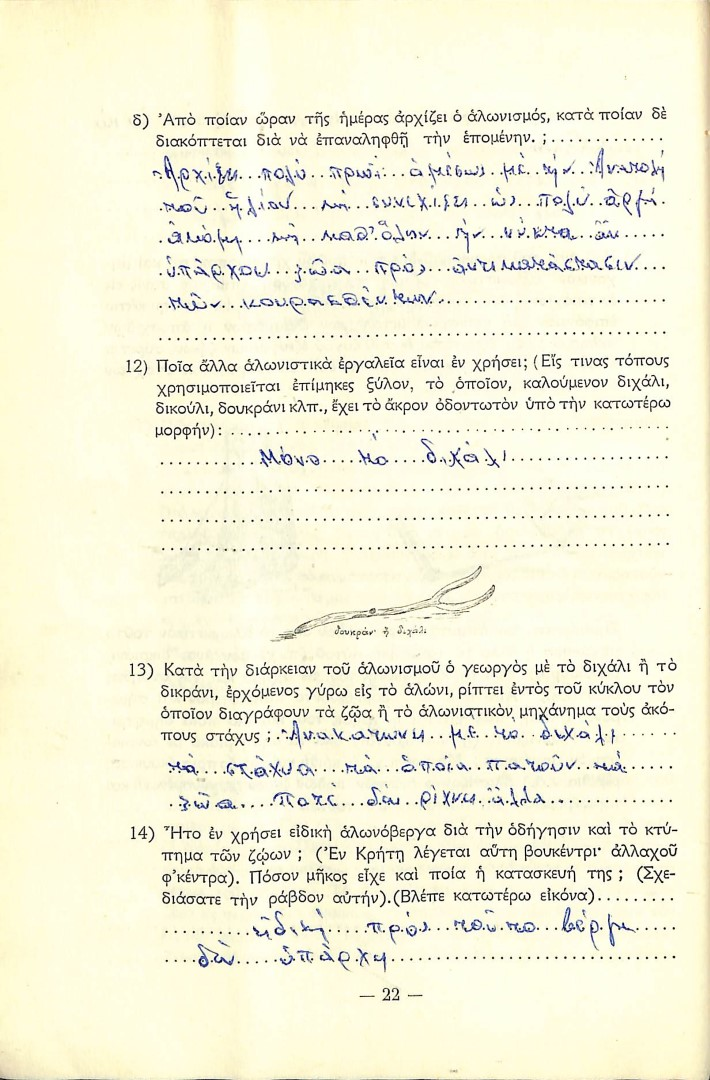 δ) Ἀπὸ ποίαν ὥραν τῆς ἡμέρας ἀρχίζει ὁ ἁλωνισμός, κατὰ ποίαν δὲ
διακόπτεται διὰ νὰ ἐπαναληφθῇ τὴν ἑπομένην. ;.............
Ἀρχίζει πολὺ πρωῒ ἀμέσως μὲ τὴν Ἀνατολὴ
τοῦ ἡλίου καὶ συνεχίζει ὡς πολὺ ἀργὰ
ἀκόμη καὶ καθ' ὅλην τὴν νύκτα ἂν
ὑπάρχουν ζῶα πρὸς ἀντικατάστασιν
τῶν κουρασθέντων.
12) Ποῖα ἄλλα ἁλωνιστικὰ ἐργαλεῖα εἶναι ἐν χρήσει; (Εἴς τινας τόπους
χρησιμοποιεῖται ἐπίμηκες ξύλον, τὸ ὁποῖον, καλούμενον διχάλι,
δικούλι, δουκράνι κλπ., ἔχει τὸ ἄκρον ὀδοντωτὸν ὑπὸ τὴν κατωτέρω
μορφήν): ..............................
Μόνο τὸ διχάλι
δουκράν' ἢ διχάλι
13) Κατὰ τὴν διάρκειαν τοῦ ἁλωνισμοῦ ὁ γεωργὸς μὲ τὸ διχάλι ἢ τὸ
δικράνι, ἐρχόμενος γύρω εἰς τὸ ἁλώνι, ρίπτει ἐντὸς τοῦ κύκλου τὸν
ὁποῖον διαγράφουν τὰ ζῷα ἢ τὸ ἁλωνιστικὸν μηχάνημα τοὺς ἀκό-
πους στάχυς ; Ἀνακατώνει μὲ τὸ διχάλι
τὰ στάχυα τὰ ὁποῖα πατοῦν τὰ
ζῶα. Ποτὲ δὲν ρίχνει ἄλλα
14) Ἦτο ἐν χρήσει εἰδικὴ ἁλωνόβεργα διὰ τὴν ὁδήγησιν καὶ τὸ κτύ-
πημα τῶν ζῴων ; (Ἐν Κρήτῃ λέγεται αὕτη βουκέντρι· ἀλλαχοῦ
φ'κέντρα). Πόσον μῆκος εἶχε καὶ ποία ἡ κατασκευή της ; (Σχε-
διάσατε τὴν ράβδον αὐτήν).(Βλέπε κατωτέρω εἰκόνα).........
εἰδικὴ πρὸς τοῦτο βέργα
δὲν ὑπάρχει
— 22 —